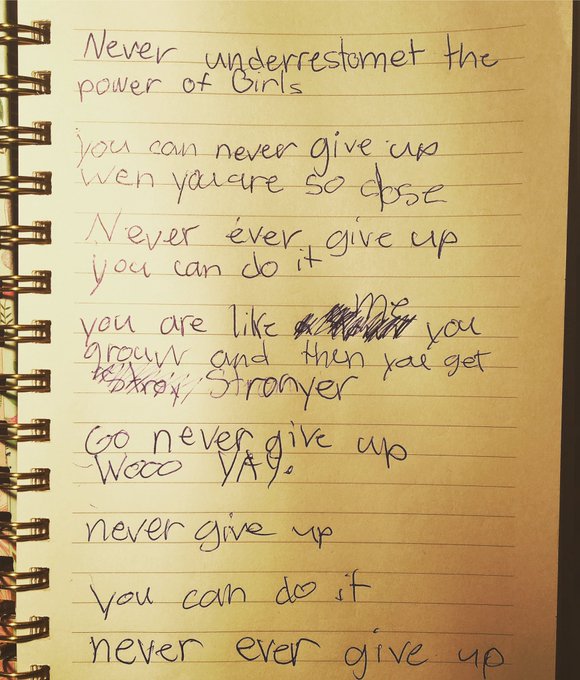 Never underrestomet the
power of Girls
you can never give up
wen you are so close
Never ever give up
you can do it
you are like me you
grouw and then you get
Stronyer
Go never give up
Wooo YAY.
never give up
you can do it
never ever give up